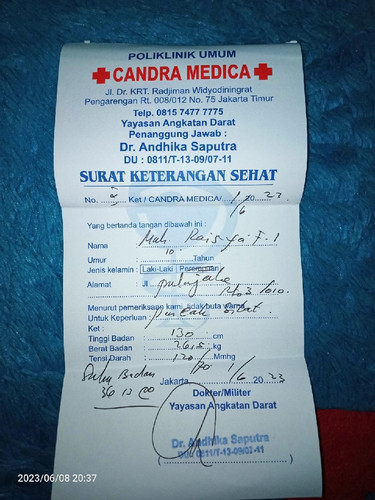 POLIKLINIK UMUM
CANDRA MEDICA
Jl. Dr. KRT. Radjiman Widyodiningrat
Pengarengan Rt. 008/012 No. 75 Jakarta Timur
Telp. 0815 7477 7775
Yayasan Angkatan Darat
Penanggung Jawab :
Dr. Andhika Saputra
DU : 0811/T-13-09/07-11
SURAT KETERANGAN SEHAT
No. Ket / CANDRA MEDICA/ 1/6 2023
Yang bertanda tangan dibawah ini :
Nama Muh Rais
Umur : 10 Tahun
Jenis kelamin : Laki-Laki Perempuan
Alamat : Jl.
Menurut pemeriksaan kami, tidak buta warna
Untuk Keperluan :
Ket :
Tinggi Badan : 130 cm
Berat Badan : 26,5 kg
Tensi Darah : 120/ Mmhg
Suhu Badan
36
Jakarta, 1/6 2023
Dokter/Militer
Yayasan Angkatan Darat
Dr. Andhika Saputra
DU : 0811/T-13-09/07-11
2023/06/08 20:37